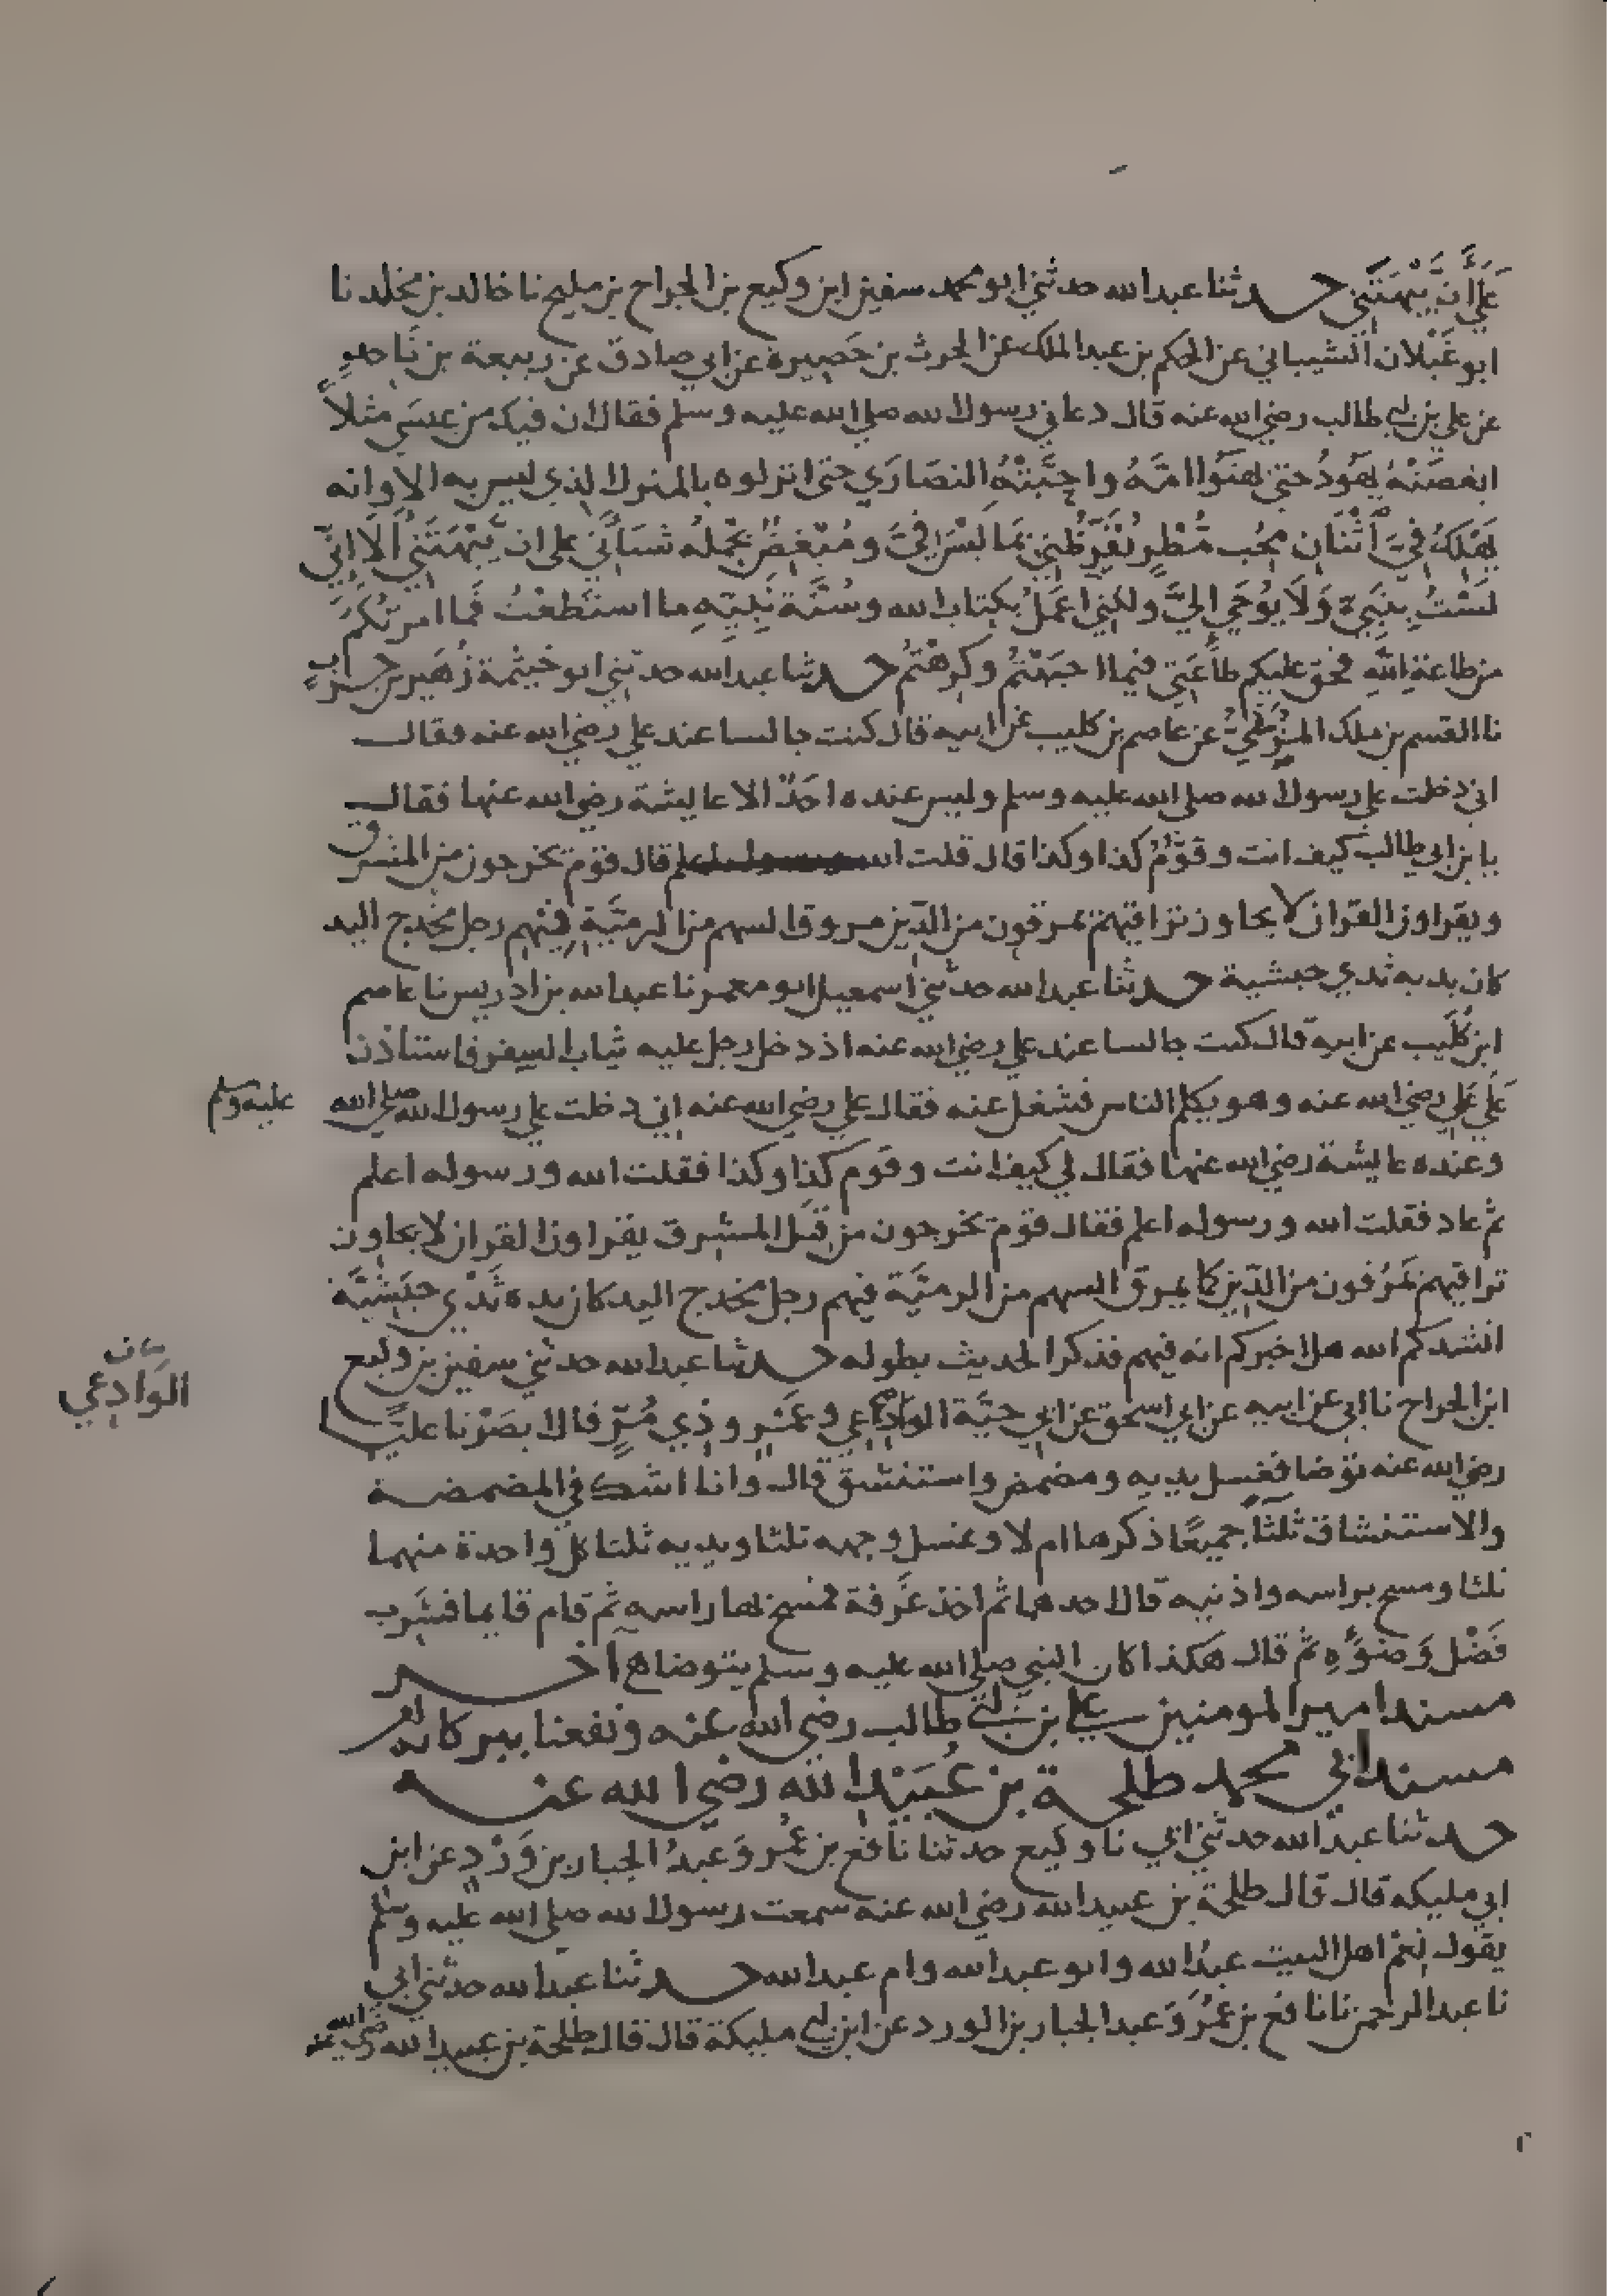 عَلَيَّ أَنْ يَبْهَتَنِي حدثنا عبد الله حدثني ابو محمد سفين ابن وكيع بن الجراح بن مليح نا خالد بن مخلد نا
ابو غَيْلان الشيباني عن الحكم بن عبد الملك عن الحرث بن حَصِيرة عن ابي صادق عن ربيعة بن نَاجدٍ
عن علي بن ابي طالب رضي الله عنه قال دعاني رسول الله صلي الله عليه وسلم فقال ان فيك من عيسَي مثلاً
ابغضَتْهُ يَهُودُ حتي بَهَتُوا امَّهُ واحَبَّتْهُ النصَارَي حتي انزلوه بالمنزل الذي ليس به الا وانه
يَهْلِكُ فِيَّ اثْنَان مُحِب مُطْرٍ يُقَرِّظُنِي بمَا لَيْسَ فيَّ ومُبْغِضٌ يحْمِلُه شَنَأَنِي علي ان يَبْهَتَنِي اَلَا اِنِّي
لسْتُ بِنَبِيٍّ وَلَا يُوحَي اِليَّ ولكني اعمَلُ بكتاب الله وسُنَّة نَبِيِّهِ ما استَطَعْتُ فَما امرتُكُم
من طاعَةِ اللَّهِ فحق عليكم طاعَتِي فيما احبَبْتُم وكرهْتُم حدثنا عبد الله حدثني ابو خيثمة زُهَير بن حرب
نا القسم بن ملك المُزَنِيُّ عن عاصم بن كليب عن ابيه قال كنت جالسا عند علي رضي الله عنه فقال
اني دخلت علي رسول الله صلي الله عليه وسلم وليس عنده احَدٌ الا عايشة رضي الله عنها فقال
يا بن ابي طالب كيف انت وقَوْمُ كذا وكذا قال قلت الله ورسوله اعلم قال قوْم يخرجون من المشرق
ويقراون القران لا يجاوز تراقيهم يمرقون من الدّين مروق السهم من الرمِيَّةِ فِيْهِم رجل مخْدج اليد
كان يديه ثدي حبشية حدثنا عبد الله حدثني اسمعيل ابو معمر نا عبد الله بن ادريس نا عاصم
ابن كُلَيب عن ابيه قال كنت جالسا عند علي رضي الله عنه اذ دخل رجل عليه ثياب السفر فاستاذن
عَلَي عَلِي رضي الله عنه وهو يكلم الناس فشغل عنه فقال علي رضي الله عنه اني دخلت علي رسول الله صلي الله عليه وسلم
وعنده عايشة رضي الله عنها فقال لي كيف انت وقوم كذا وكذا فقلت الله ورسوله اعلم
ثم عاد فقلت الله ورسوله اعلم فقال قوْم يخرجون من قِبَل المشرق يقراون القران لا يجاوز
تراقيهم يَمرُقون من الدّين كما يمرق السهم من الرميَّة فيهم رجل مخدج اليد كان يده ثَدْي حبَشيَّة
انشدكم الله هل اخبرتكم انه فيهم فذكر الحديث بطوله حدثنا عبد الله حدثني سفين بن وكيع
ابن الجراح نا ابي عن ابيه عن ابي اسحق عن ابي حيَّة الوادعي وعَمْرٍو ذِي مُرٍّ قالا ابصَرْنا عليًّا
بيان
الوَادِعي
رضي الله عنه توَضا فغسل يديه ومضمض واستنشق قال وانا اشك في المضمضة
والاستنشاق ثلثًا جميعًا ذكرها ام لا وغسل وجهه ثلثا ويديه ثلثا كلّ واحدة منهما
ثلثا ومسح براسه واذنيه قال احدهما ثم اخذ غَرفة فمسح بها راسه ثم قام قايما فشرب
فَضْل وَضوْءِهِ ثم قال هَكذا كان النبي صلي الله عليه وسلم يتوضا آخر
مسند امير المومنين علي بن ابي طالب رضي الله عنه ونفعنا ببركاته
مسند ابي محمد طلحة بن عُبَيْد الله رضي الله عنه
حدثنا عبد الله حدثني ابي نا وكيع حدثنا نَافع بن عُمر وَعبدُ الجبار بن وَرْدٍ عن ابن
ابي مليكه قال قال طلحة بن عبيد الله رضي الله عنه سمعت رسول الله صلي الله عليه وسلم
يقول نِعْمَ اهل البيت عبدُ الله وابو عبد الله وام عبد الله حدثنا عبد الله حدثني ابي
نا عبد الرحمن نا نافع بن عمُرَ وَعبد الجبار بن الورد عن ابن ابي مليكة قال قال طلحة بن عبيد الله رضي الله عنه